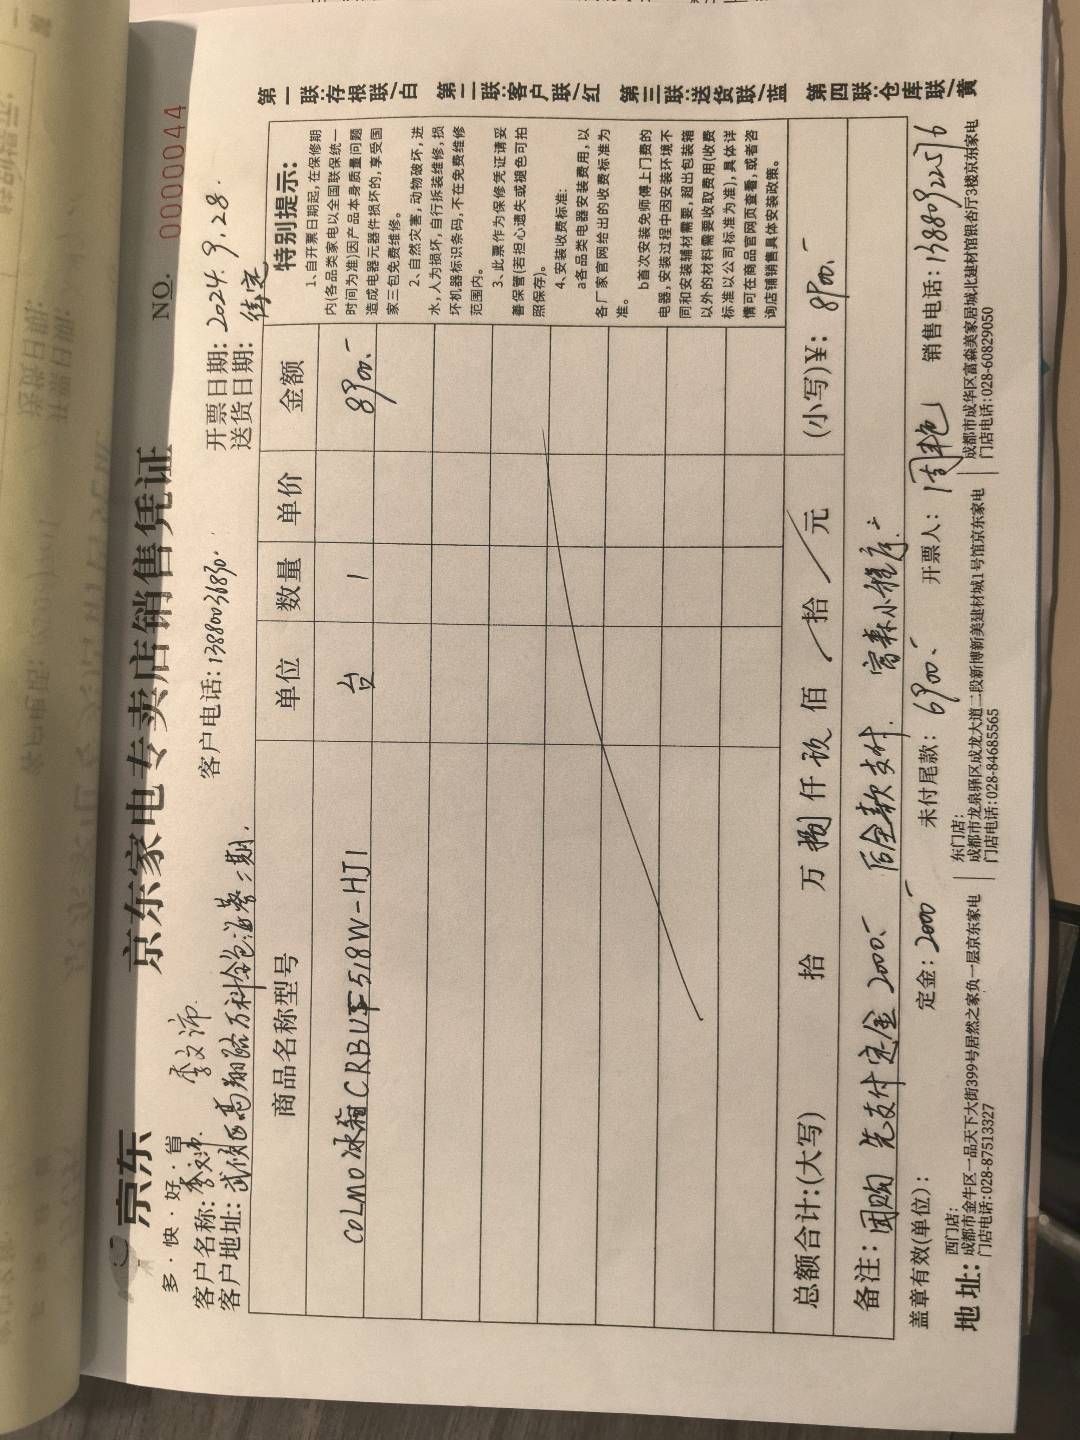 京东
多·快·好·省
京东家电专卖店销售凭证
NO. 0000044
李文沛
客户名称：李文沛
客户电话：13880036830
开票日期：2024.9.28.
客户地址：武侯区高翔路万科 二期.
送货日期：待定
商品名称型号 单位 数量 单价 金额
COLMO冰箱CRBUF518W-HJ1 台 1 8900.-
特别提示：
1、自开票日期起，在保修期
内(各品类家电以全国联保统一
时间为准)因产品本身质量问题
造成电器元器件损坏的，享受国
家三包免费维修。
2、自然灾害，动物破坏，进
水，人为损坏，自行拆装维修，损
坏机器标识条码，不在免费维修
范围内。
3、此票作为保修凭证请妥
善保管(若担心遗失或褪色可拍
照保存)。
4、安装收费标准：
a各品类电器安装费用，以
各厂家官网给出的收费标准为
准。
b首次安装免师傅上门费的
电器，安装过程中因安装环境不
同和安装辅材需要，超出包装箱
以外的材料需要收取费用(收费
标准以公司标准为准)，具体详
情可在商品官网页查看，或者咨
询店铺销售具体安装政策。
总额合计：(大写) 拾 万 捌 仟 玖 佰 拾 元 (小写)¥：8900.-
备注：团购 先支付定金2000.- 后全款支付. 富森小程序.
盖章有效(单位)： 定金：2000 未付尾款：6900.- 开票人：周艳 销售电话：13880922576
地址：
西门店：
成都市金牛区一品天下大街399号居然之家负一层京东家电
门店电话：028-87513327
东门店：
成都市龙泉驿区成龙大道二段新博新美建材城1号馆京东家电
门店电话：028-84685565
成都市成华区富森美家居城北建材馆银杏厅3楼京东家电
门店电话：028-60829050
第一联：存根联/白 第二联：客户联/红 第三联：送货联/蓝 第四联：仓库联/黄